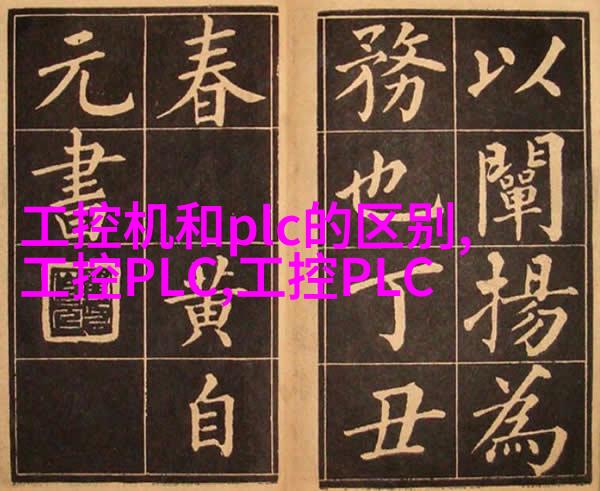 以闡揚為
務也丁丑
春黃自
元書
工控机和plc的区别,
工控PLC,工控PLC